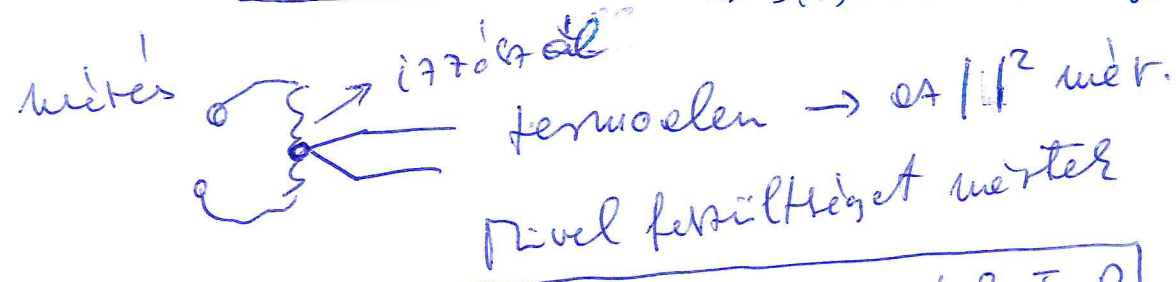 mérés
izzószál
termoelem → az | |² mér.
Mivel feszültséget mértek